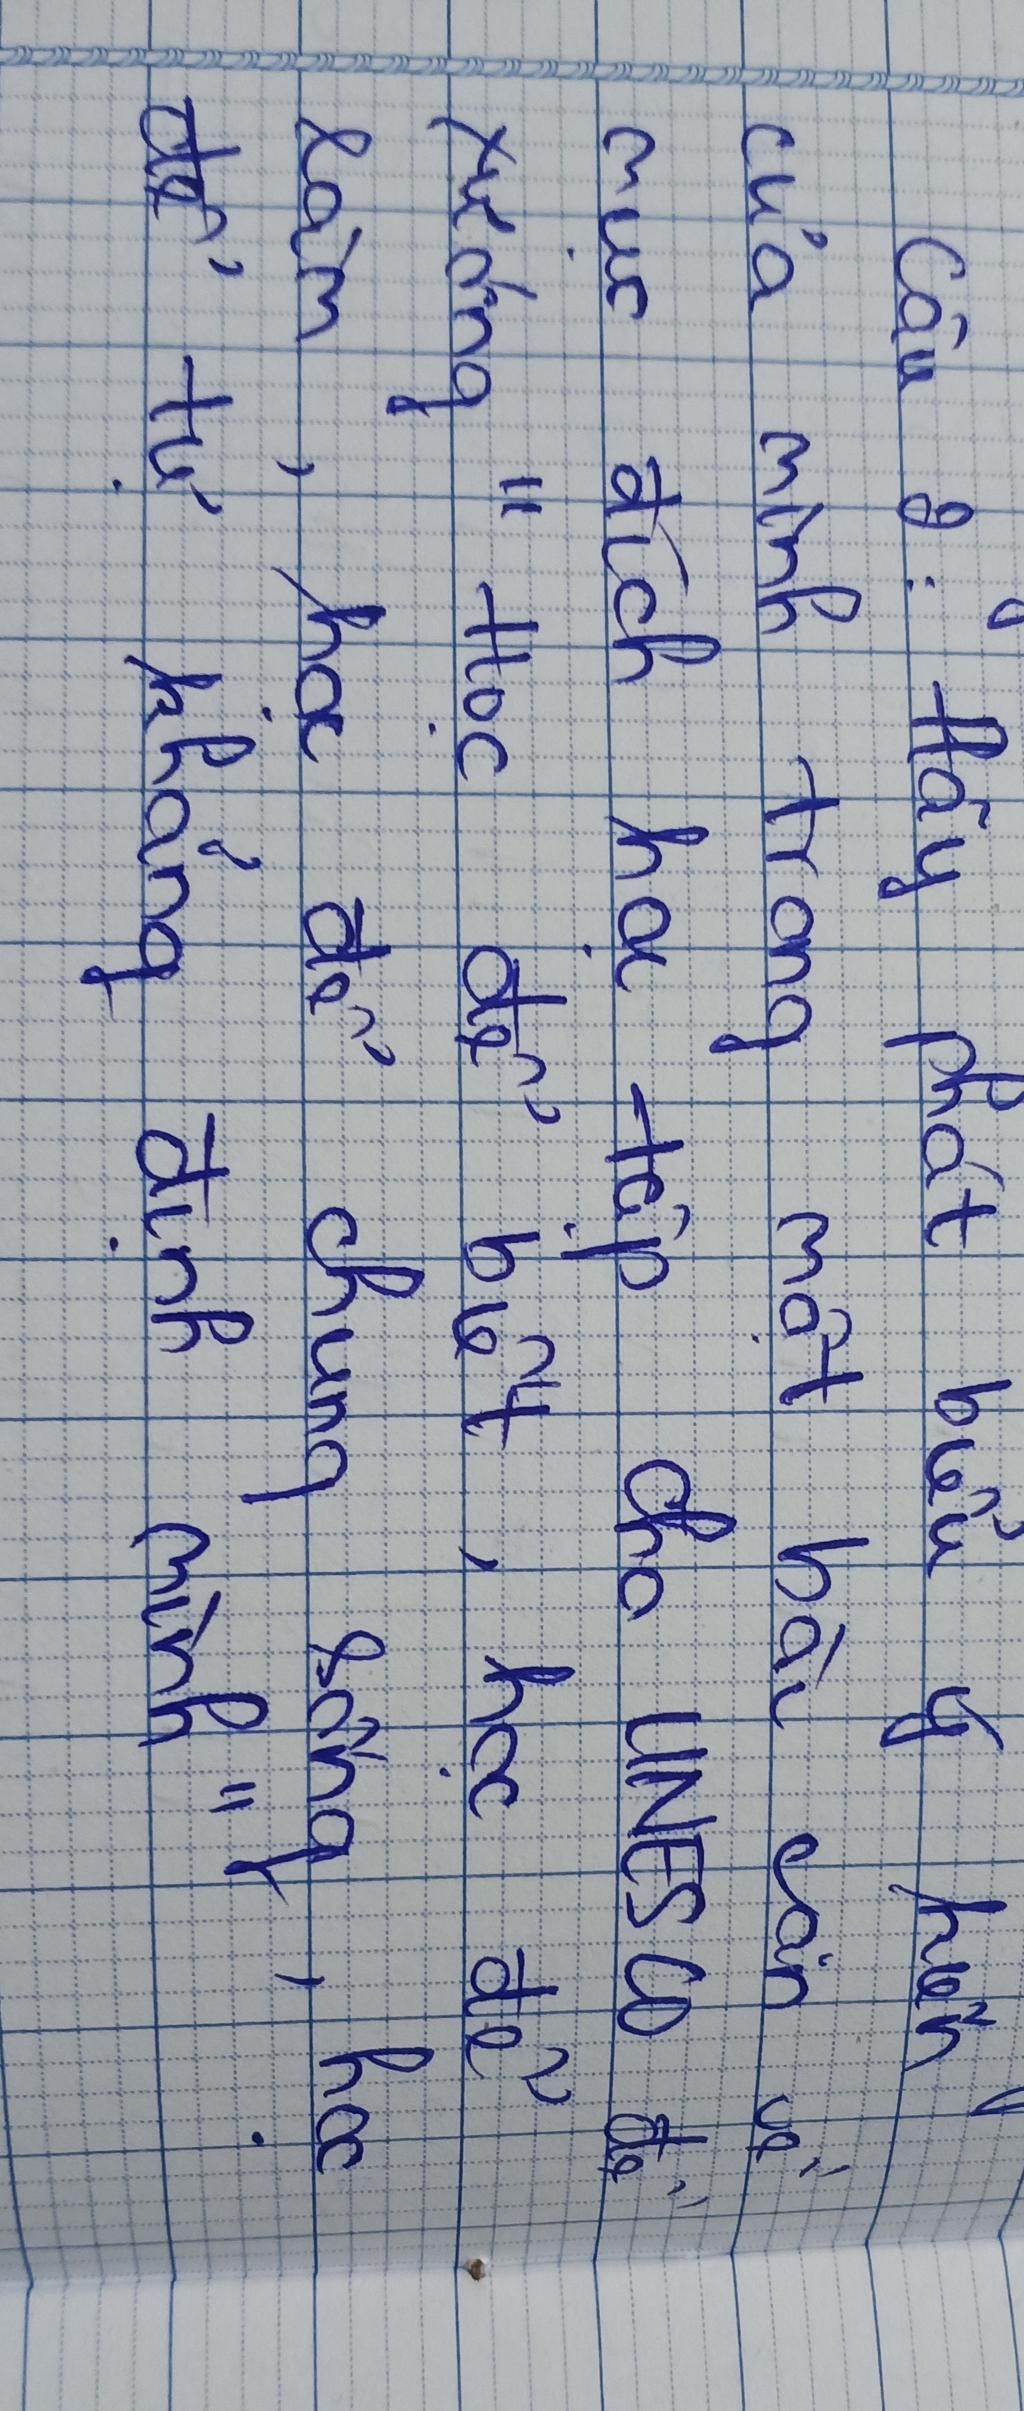 Câu 8: Hãy phát biểu ý kiến
của mình trong một bài văn về
mục đích học tập cho UNESCO đề
xướng " Học để biết, học để
làm, học để chung sống, học
để tự khẳng định mình"